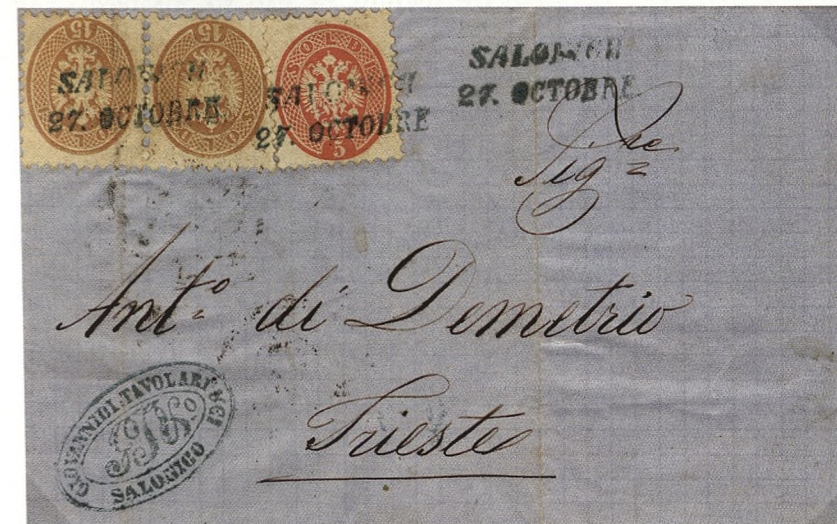 15 15 SOLDI 5
SALONICH
27. OCTOBRE
SALONICH
27. OCTOBRE
SALONICH
27. OCTOBRE
Sig.re
Ant.o di Demetrio
Trieste
GIOVANNI DI TAVOLARI
SALONICO